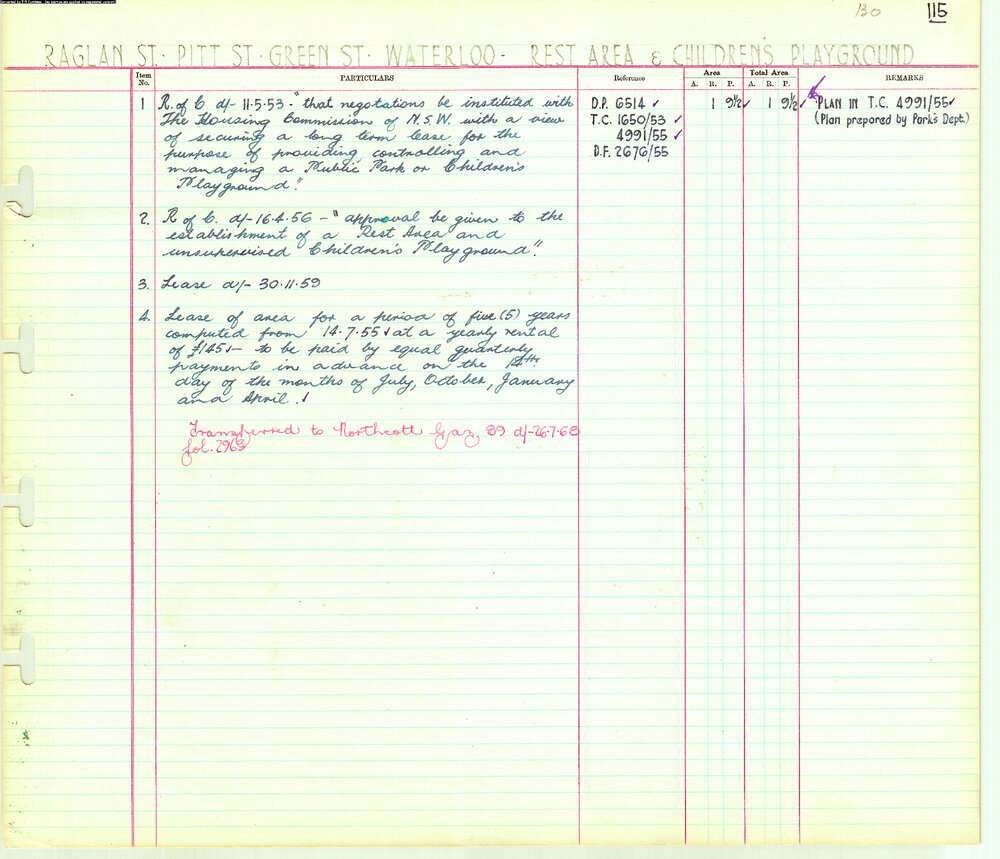 130
115
RAGLAN ST. PITT ST. GREEN ST. WATERLOO - REST AREA & CHILDREN'S PLAYGROUND
Item No. PARTICULARS Reference Area Total Area REMARKS
A. R. P. A. R. P.
1 R. of C d/- 11.5.53 - "that negotations be instituted with D.P. 6514 ✓ 1 9½ ✓ 1 9½ ✓ PLAN IN T.C. 4991/55 ✓
The Housing Commission of N.S.W. with a view T.C. 1650/53 ✓ (Plan prepared by Park's Dept.)
of securing a long term lease for the 4991/55 ✓
purpose of providing, controlling and D.F. 2676/55
managing a Public Park or Children's
Playground".
2. R of C. d/- 16.4.56 - "approval be given to the
establishment of a Rest Area and
unsupervised Children's Playground".
3. Lease d/- 30.11.59
4. Lease of area for a period of five (5) years
computed from 14.7.55 ✓ at a yearly rental
of £145 ✓ - to be paid by equal quarterly
payments in advance on the 14th
day of the months of July, October, January
and April. ✓
Transferred to Northcott Gaz. 89 d/- 26.7.68
fol. 2963